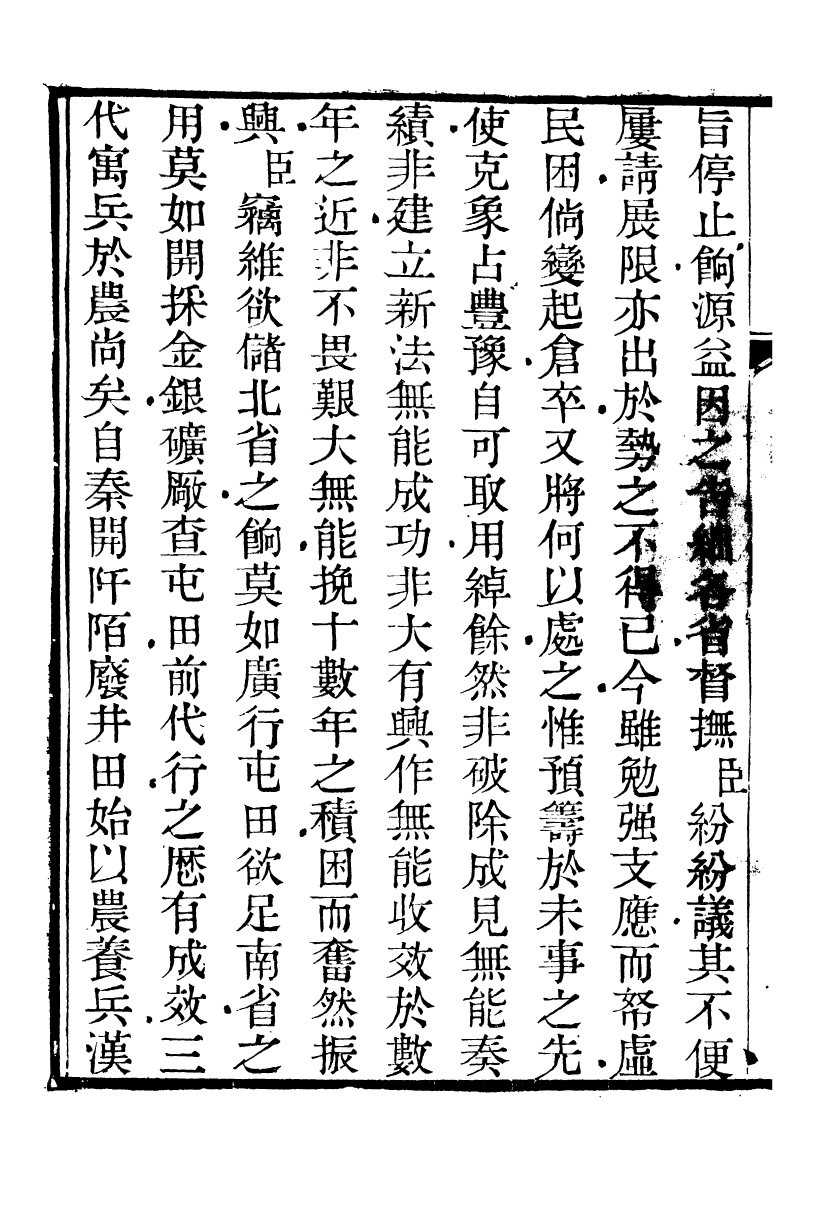 旨停止餉源益因之告絀各省督撫臣紛紛議其不便
屢請展限亦出於勢之不得已今雖勉强支應而帑虛
民困倘變起倉卒又將何以處之惟預籌於未事之先
使克象占豐豫自可取用綽餘然非破除成見無能奏
績非建立新法無能成功非大有興作無能收效於數
年之近非不畏艱大無能挽十數年之積困而奮然振
興臣竊維欲儲北省之餉莫如廣行屯田欲足南省之
用莫如開採金銀礦厰查屯田前代行之厯有成效三
代寓兵於農尚矣自秦開阡陌廢井田始以農養兵漢